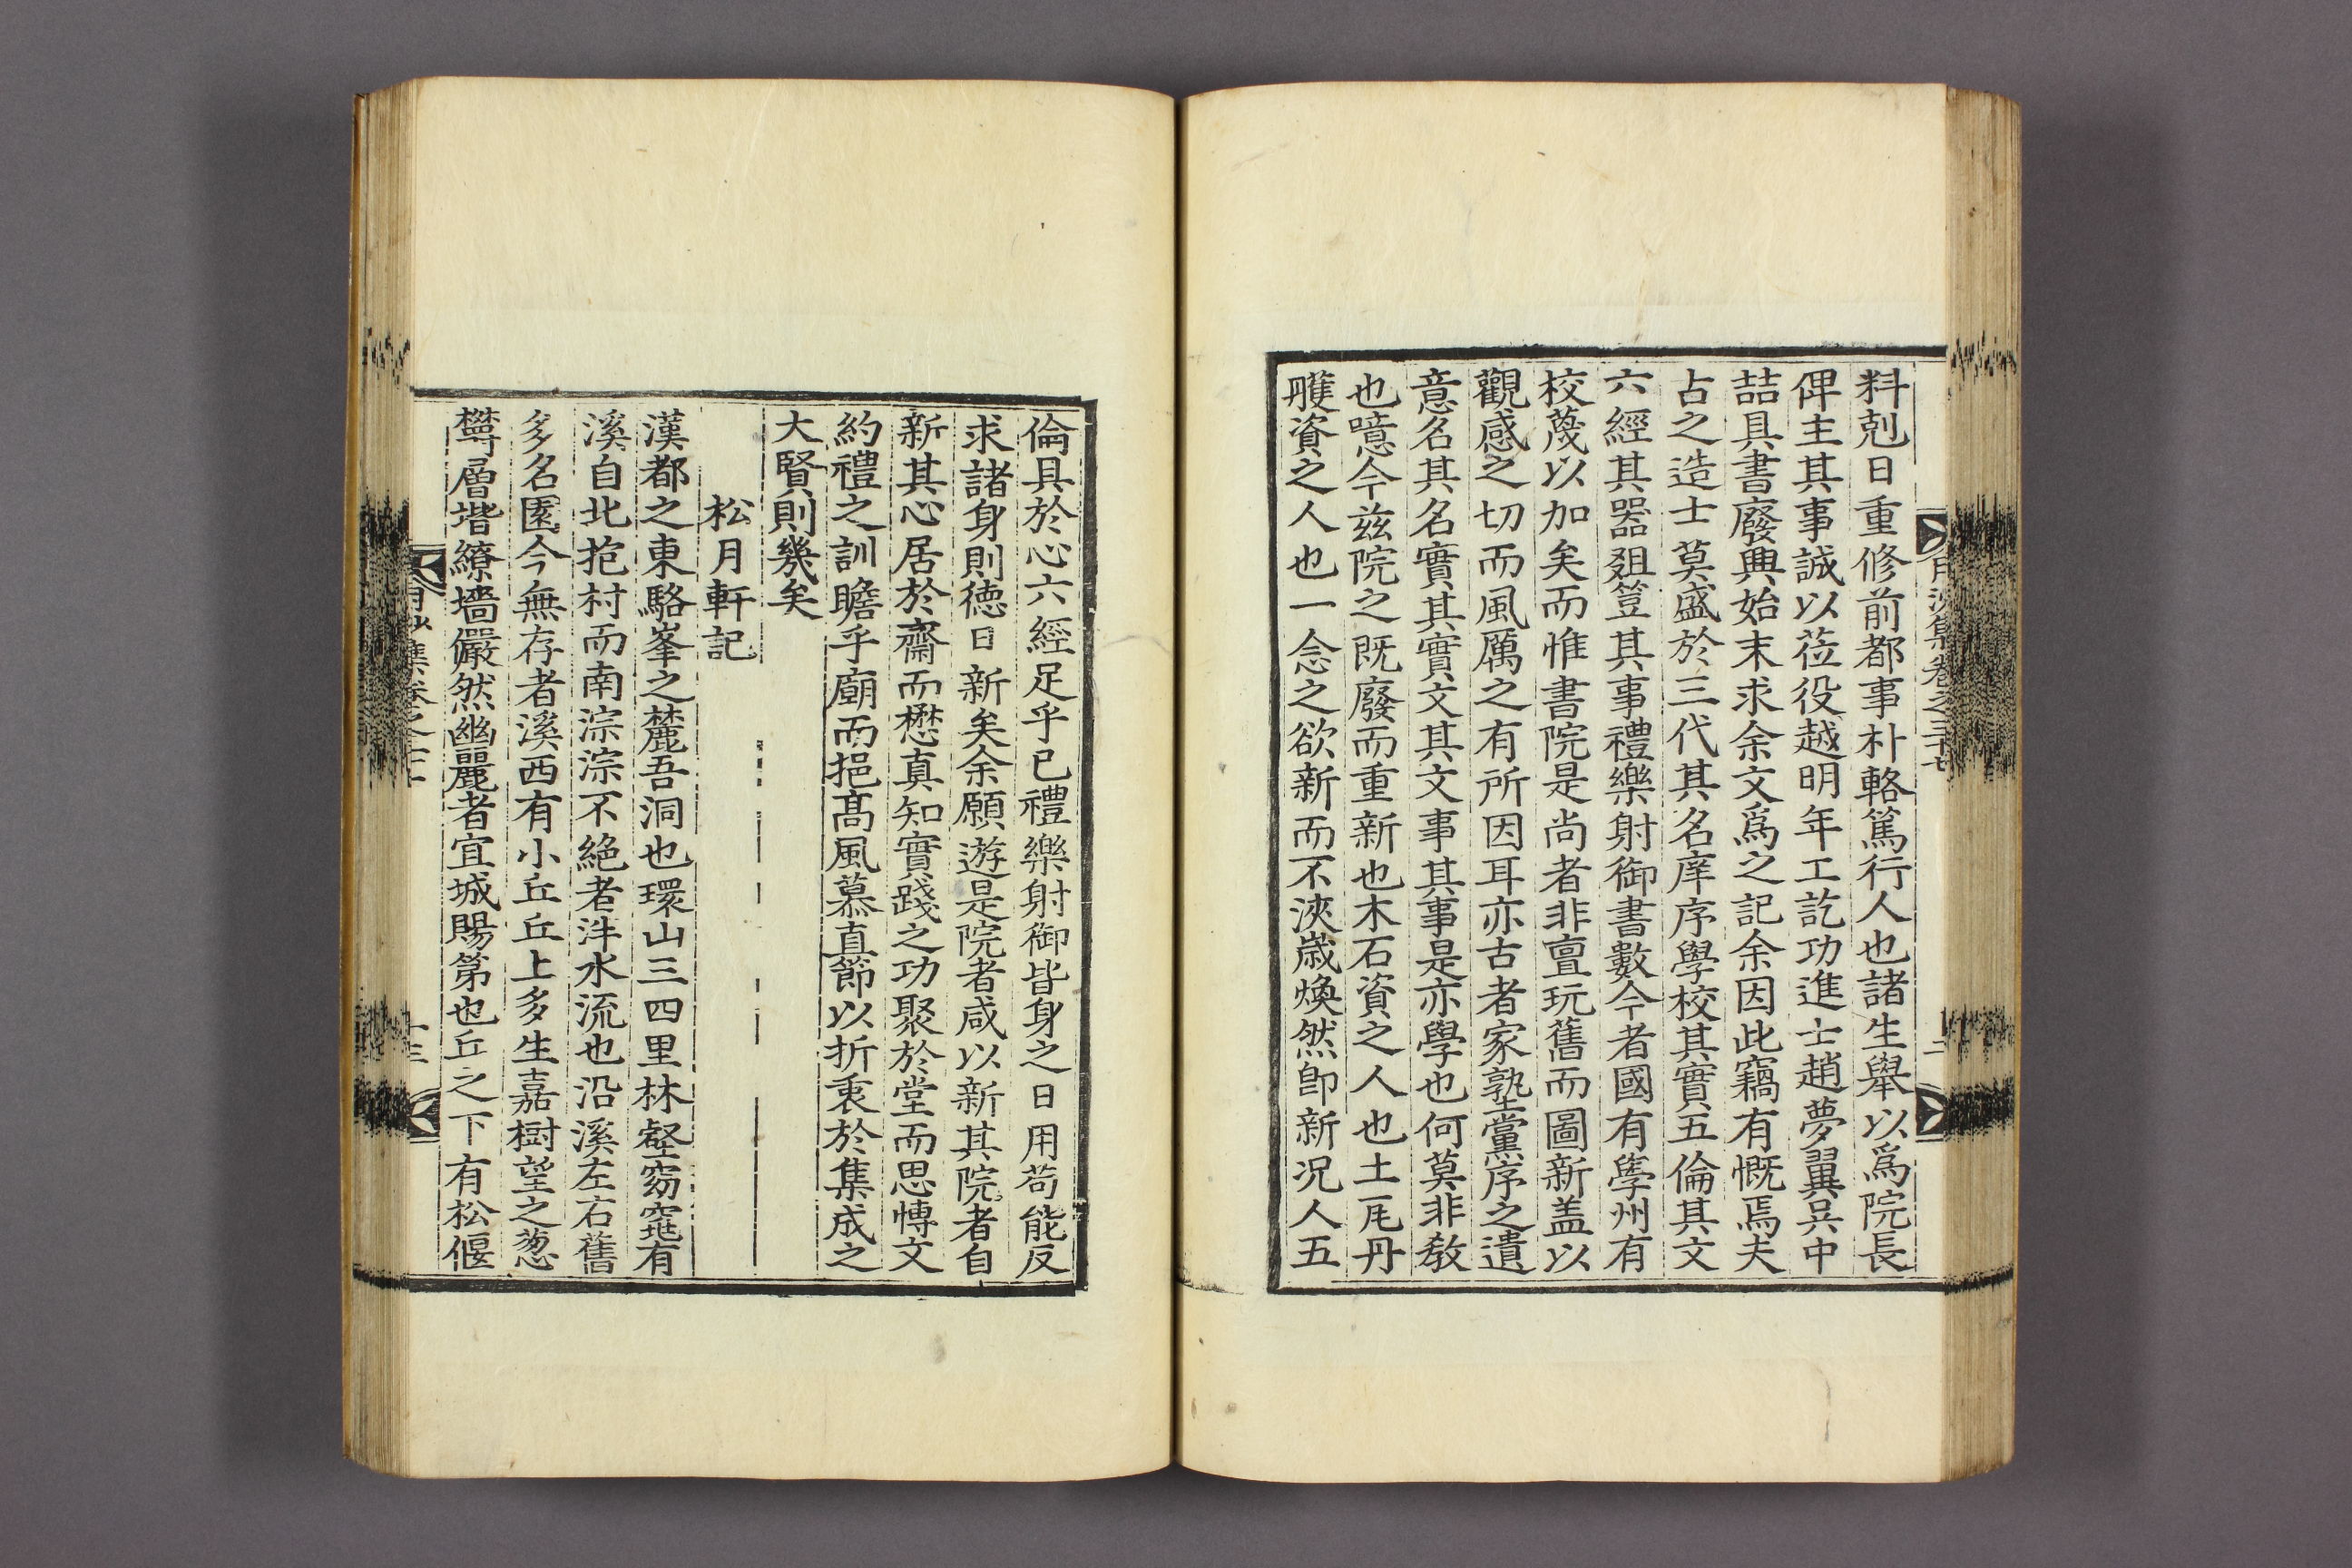 料剋日重修前都事朴輅篤行人也諸生舉以爲院長
俾主其事誠以莅役越明年工訖功進士趙夢翼吴中
喆具書廢興始末求余文爲之記余因此竊有慨焉夫
占之造士莫盛於三代其名庠序學校其實五倫其文
六經其器爼豆其事禮樂射御書數今者國有學州有
校蔑以加矣而惟書院是尚者非亶玩舊而圖新盖以
觀感之切而風厲之有所因耳亦古者家塾黨序之遺
意名其名實其實文其文事其事是亦學也何莫非敎
也噫今兹院之既廢而重新也木石資之人也土瓦丹
雘資之人也一念之欲新而不浹歲煥然卽新况人五
月沙集卷之三十七
十二
倫具於心六經足乎已禮樂射御皆身之日用苟能反
求諸身則德日新矣余願遊是院者咸以新其院者自
新其心居於齋而懋真知實踐之功聚於堂而思愽文
約禮之訓瞻乎廟而挹髙風慕直節以折衷於集成之
大賢則幾矣
松月軒記
漢都之東駱峯之麓吾洞也環山三四里林壑窈窕有
溪自北抱村而南淙淙不絶者泮水流也沿溪左右舊
多名園今無存者溪西有小丘丘上多生嘉樹望之葱
欝層堦繚墻儼然幽麗者宜城賜第也丘之下有松偃
月沙集卷之三十
十三